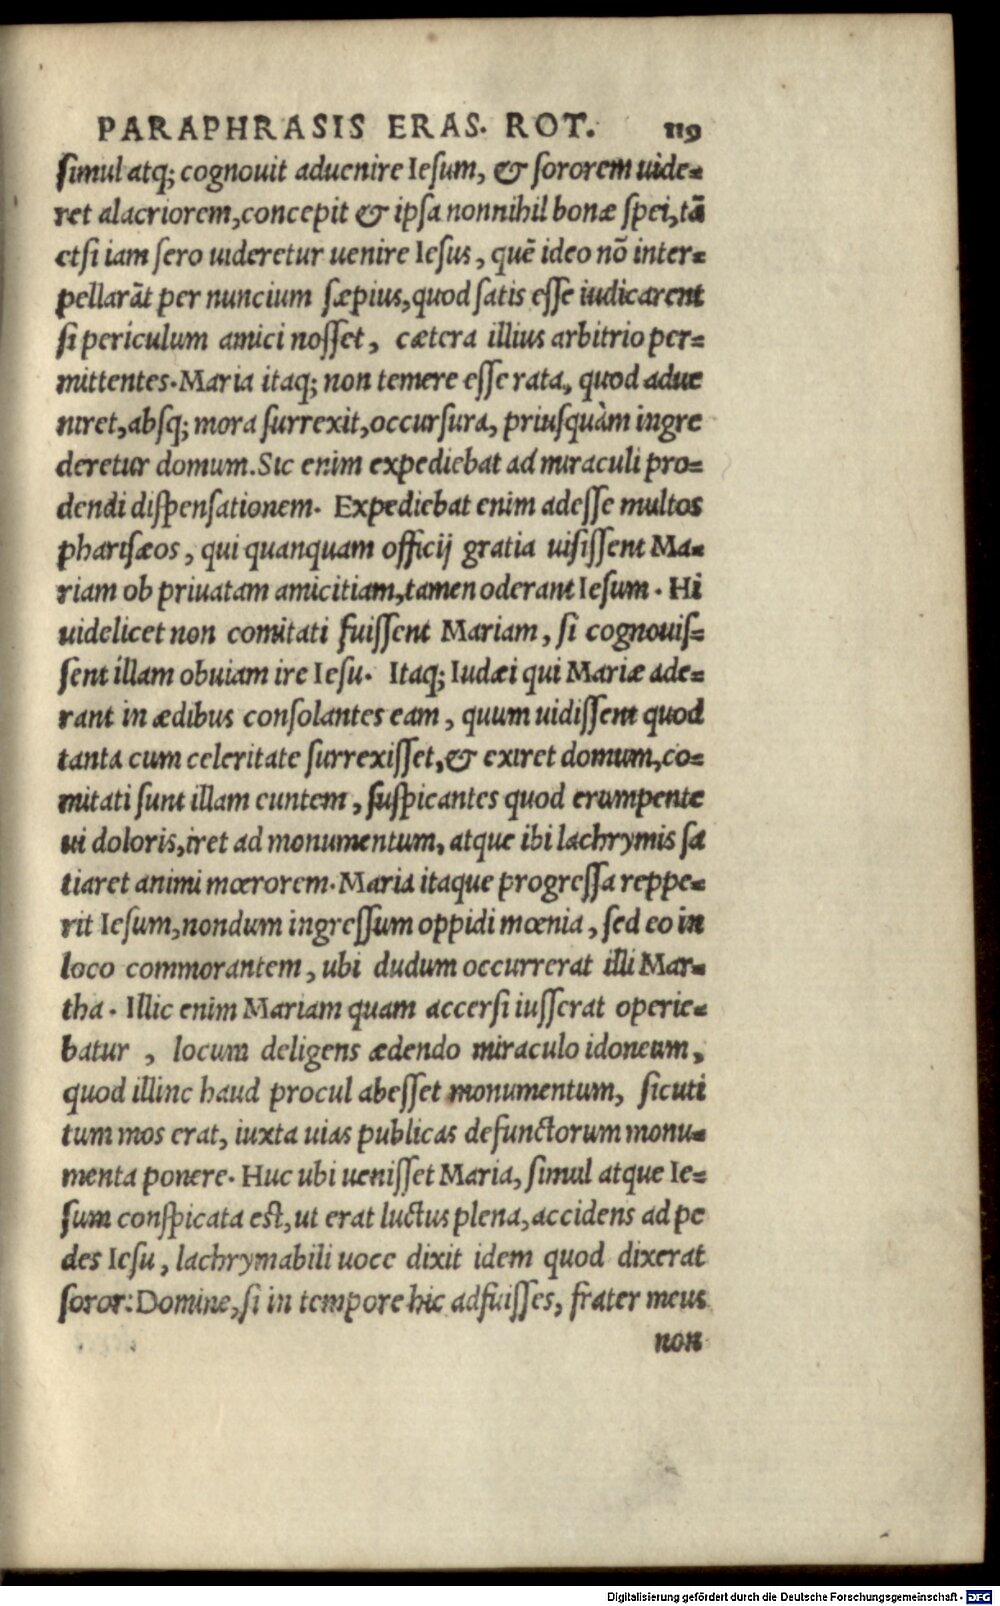 PARAPHRASIS ERAS. ROT. 119
ſimul atq; cognouit aduenire Ieſum, & ſororem uide=
ret alacriorem, concepit & ipſa nonnihil bonæ ſpei, tã
etſi iam ſero uideretur uenire Ieſus, quẽ ideo nõ inter=
pellarãt per nuncium ſæpius, quod ſatis eſſe iudicarent
ſi periculum amici noſſet, cætera illius arbitrio per=
mittentes. Maria itaq; non temere eſſe rata, quod adue
niret, abſq; mora ſurrexit, occurſura, priuſquàm ingre
deretur domum. Sic enim expediebat ad miraculi pro=
dendi diſpenſationem. Expediebat enim adeſſe multos
phariſæos, qui quanquam officij gratia uiſiſſent Ma=
riam ob priuatam amicitiam, tamen oderant Ieſum. Hi
uidelicet non comitati fuiſſent Mariam, ſi cognouiſ=
ſent illam obuiam ire Ieſu. Itaq; Iudæi qui Mariæ ade=
rant in ædibus conſolantes eam, quum uidiſſent quod
tanta cum celeritate ſurrexiſſet, & exiret domum, co=
mitati ſunt illam euntem, ſuſpicantes quod erumpente
ui doloris, iret ad monumentum, atque ibi lachrymis ſa
tiaret animi mœrorem. Maria itaque progreſſa reppe=
rit Ieſum, nondum ingreſſum oppidi mœnia, ſed eo in
loco commorantem, ubi dudum occurrerat illi Mar=
tha. Illic enim Mariam quam accerſi iuſſerat operie=
batur, locum deligens ædendo miraculo idoneum,
quod illinc haud procul abeſſet monumentum, ſicuti
tum mos erat, iuxta uias publicas defunctorum monu=
menta ponere. Huc ubi ueniſſet Maria, ſimul atque Ie=
ſum conſpicata eſt, ut erat luctus plena, accidens ad pe
des Ieſu, lachrymabili uoce dixit idem quod dixerat
ſoror: Domine, ſi in tempore hic adfuiſſes, frater meus
non
Digitalisierung gefördert durch die Deutsche Forschungsgemeinschaft - DFG